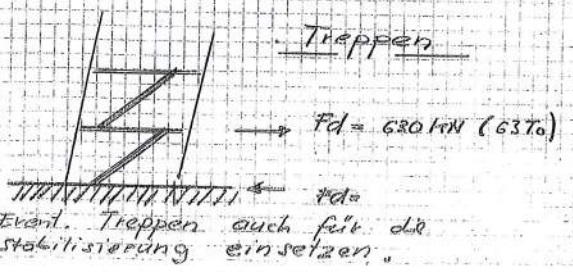 Treppen
Fd = 630 kN (63To)
Fd=
Event. Treppen auch für die
stabilisierung einsetzen.